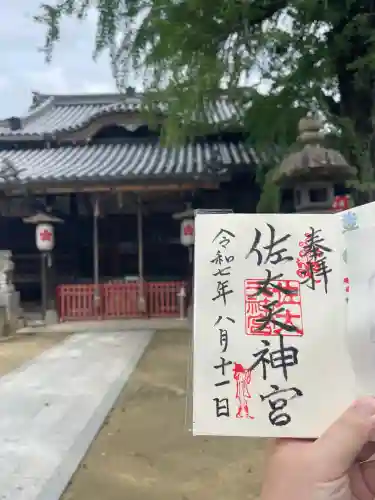 奉拝
佐太天神宮
令和七年八月十一日